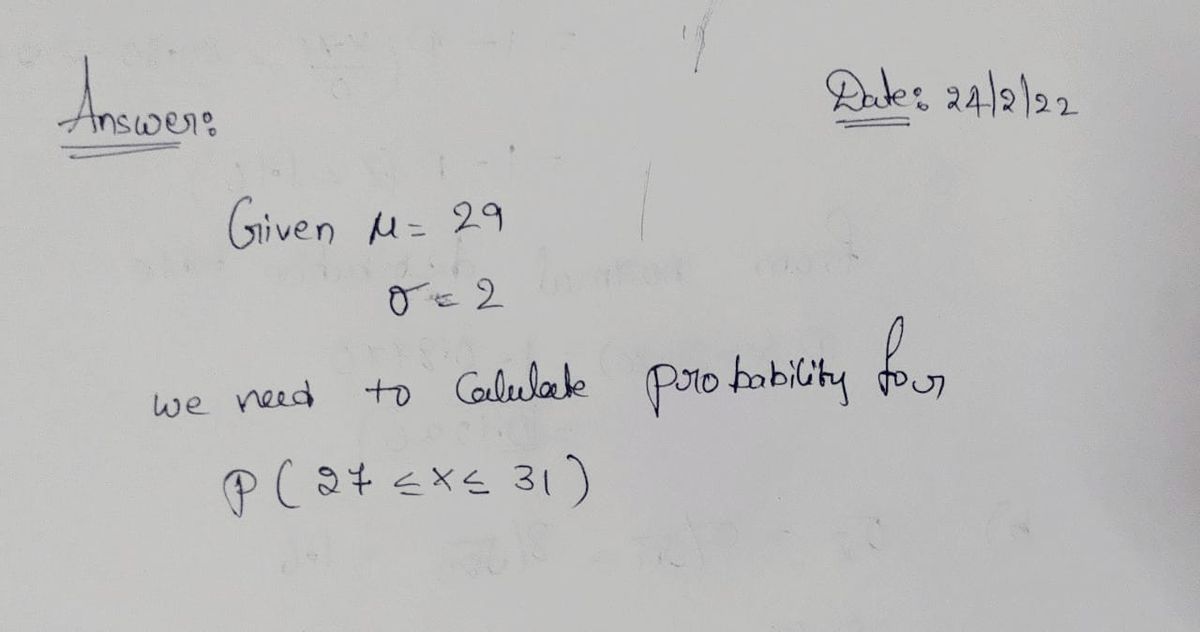 Answer:
Date: 24/2/22
Given μ = 29
σ = 2
we need to Calulate probability for
P ( 27 ≤ x ≤ 31 )